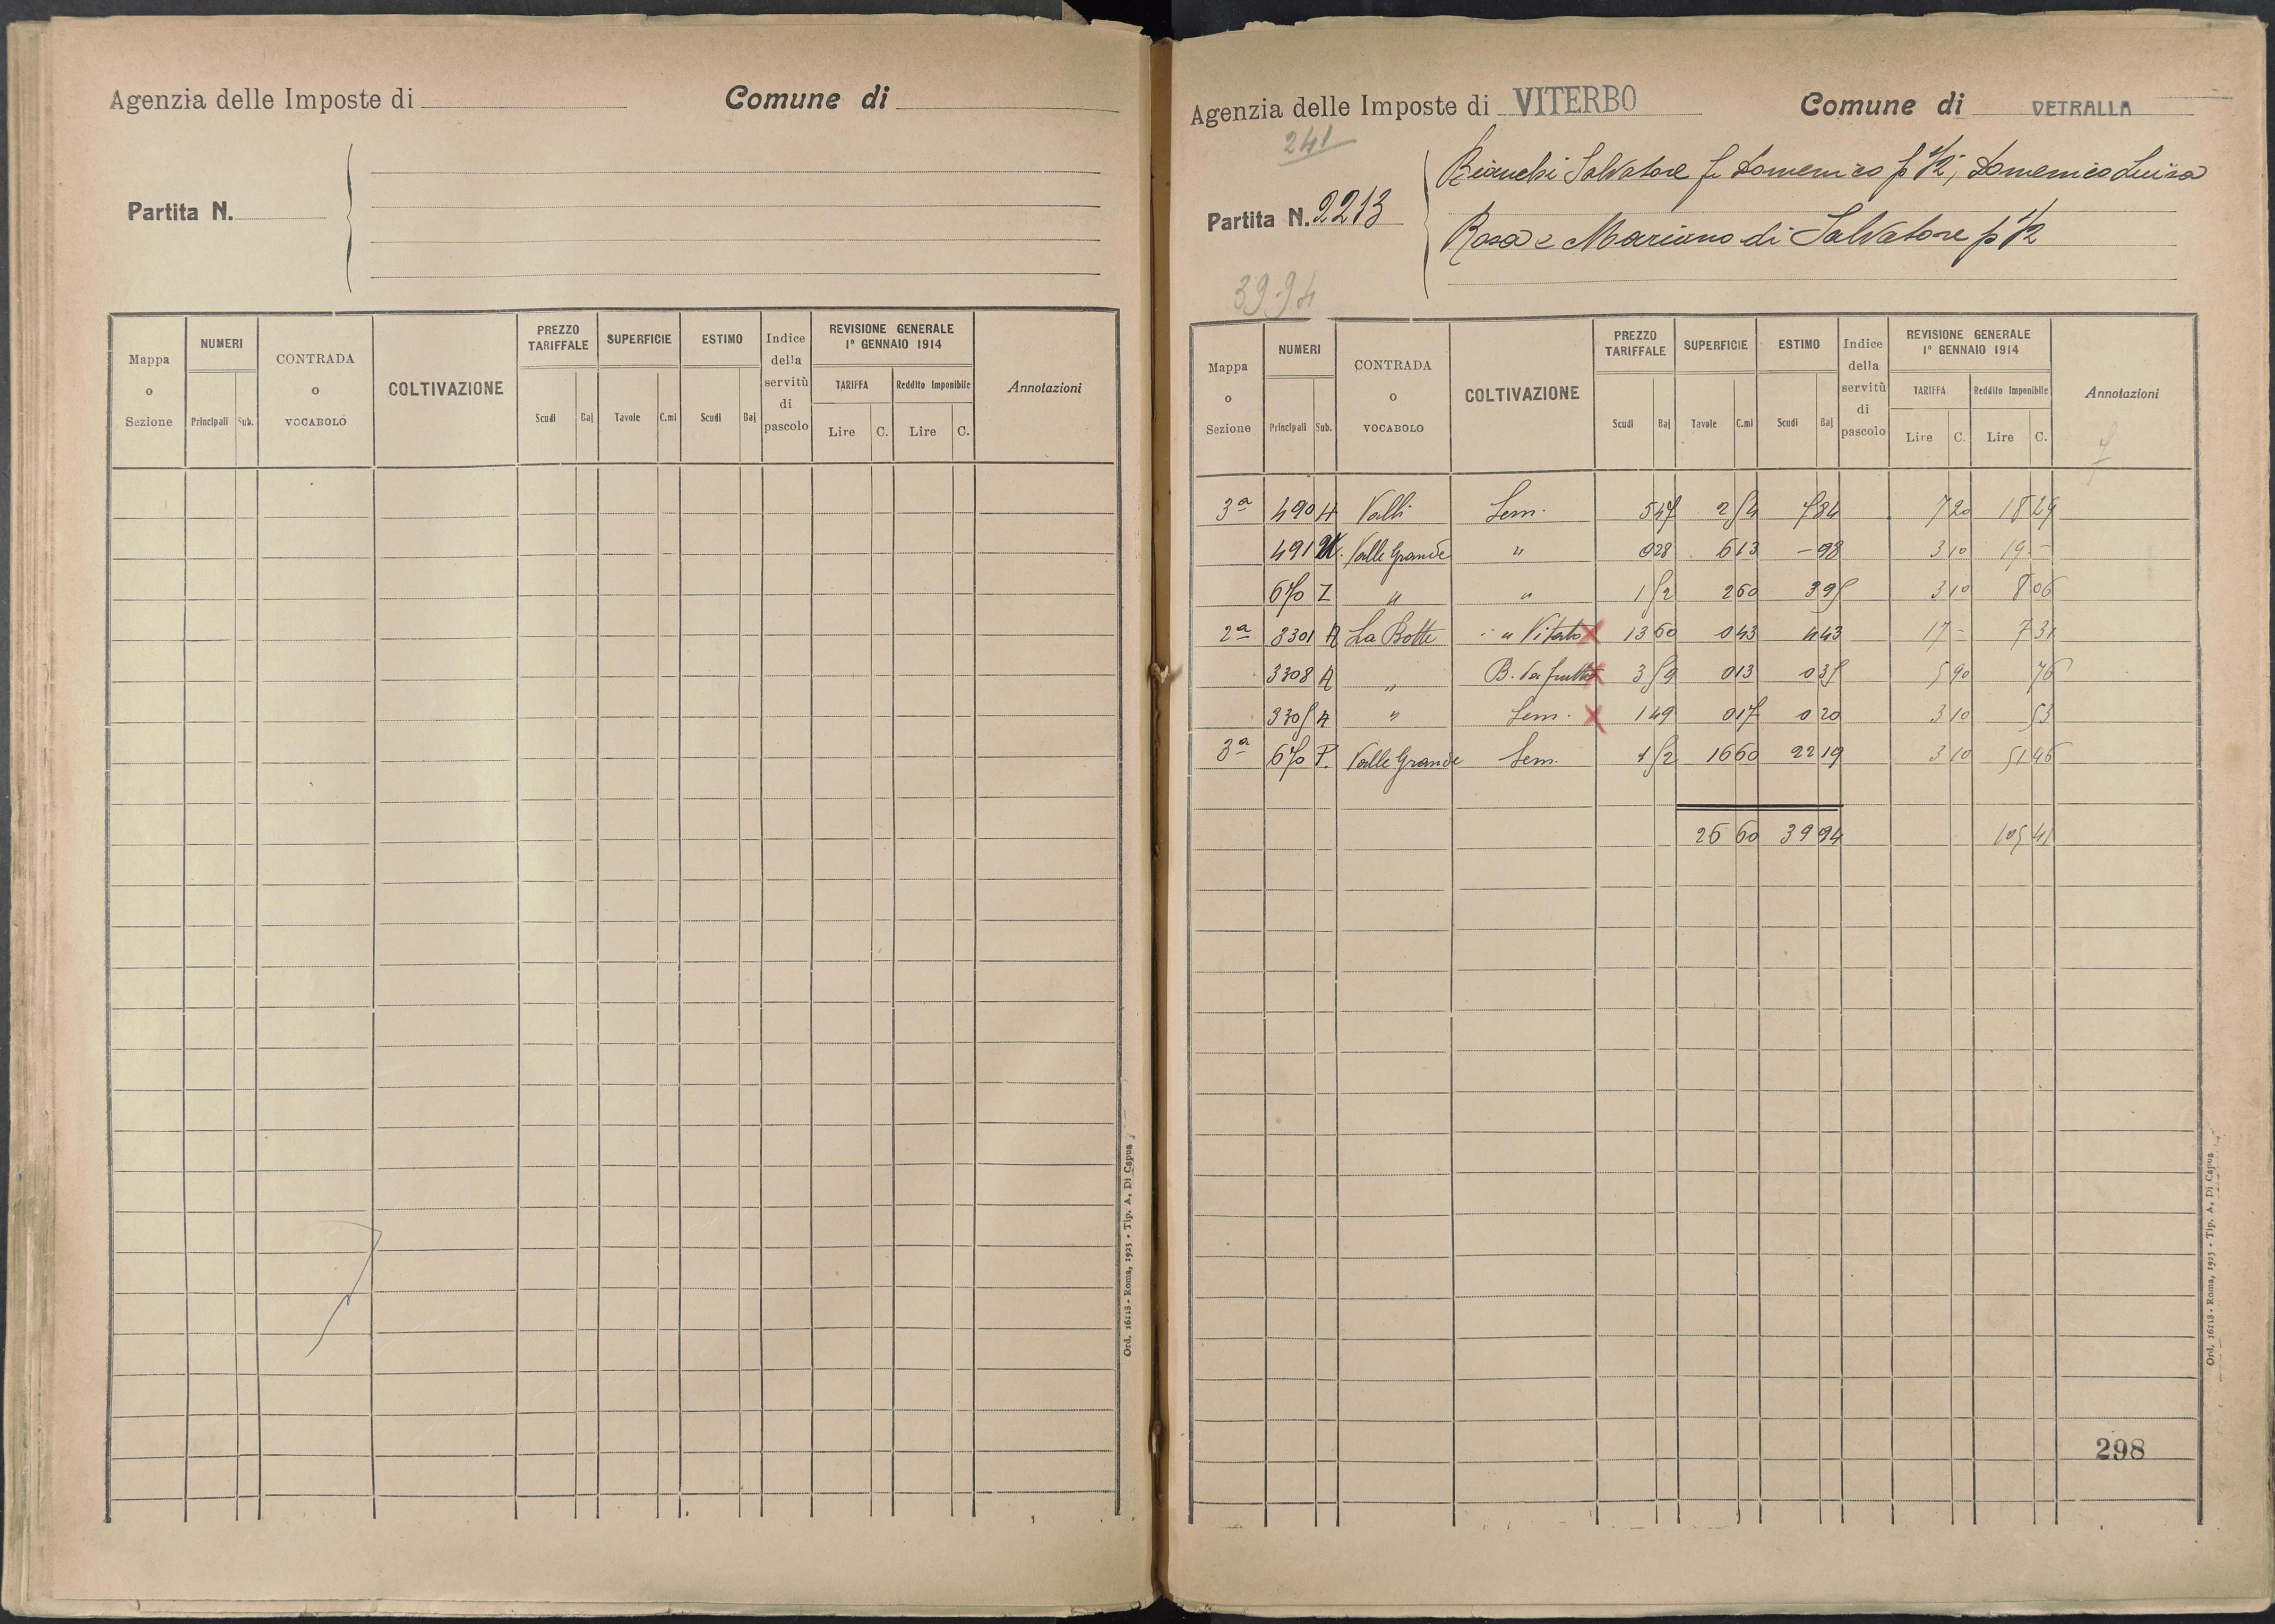 Agenzia delle Imposte di
Comune di
Partita N.
Mappa o Sezione
NUMERI
Principali Sub.
CONTRADA o VOCABOLO
COLTIVAZIONE
PREZZO TARIFFALE
Scudi Baj
SUPERFICIE
Tavole C.mi
ESTIMO
Scudi Baj
Indice della servitù di pascolo
REVISIONE GENERALE 1º GENNAIO 1914
TARIFFA Reddito Imponibile
Lire C. Lire C.
Annotazioni
Ord. 16118 - Roma, 1923 - Tip. A. Di Capua
Agenzia delle Imposte di VITERBO
Comune di VETRALLA
241
Partita N. 2213
Bianchi Salvatore fu Domenico p 1/2, Domenico Luisa
Rosa e Mariano di Salvatore p 1/2
39-94
Mappa o Sezione
NUMERI
Principali Sub.
CONTRADA o VOCABOLO
COLTIVAZIONE
PREZZO TARIFFALE
Scudi Baj
SUPERFICIE
Tavole C.mi
ESTIMO
Scudi Baj
Indice della servitù di pascolo
REVISIONE GENERALE 1º GENNAIO 1914
TARIFFA Reddito Imponibile
Lire C. Lire C.
Annotazioni
3ª 490 H Valli Sem. 2 54 7 20 18 29
491 Valle Grande " 0 28 6 13 - 98 3 10 19 -
670 Z " " 1 52 2 60 3 95 3 10 8 06
2ª 3301 A La Botte " Vitato 13 60 0 43 4 43 17 - 7 31
3308 A " 0 13 0 35 5 90 76
3305 A " Sem. 1 49 0 17 0 20 3 10 53
3ª 670 P. Valle Grande Sem. 1 52 16 60 22 19 3 10 51 46
26 60 39 94 105 41
298
Ord. 16118 - Roma, 1923 - Tip. A. Di Capua